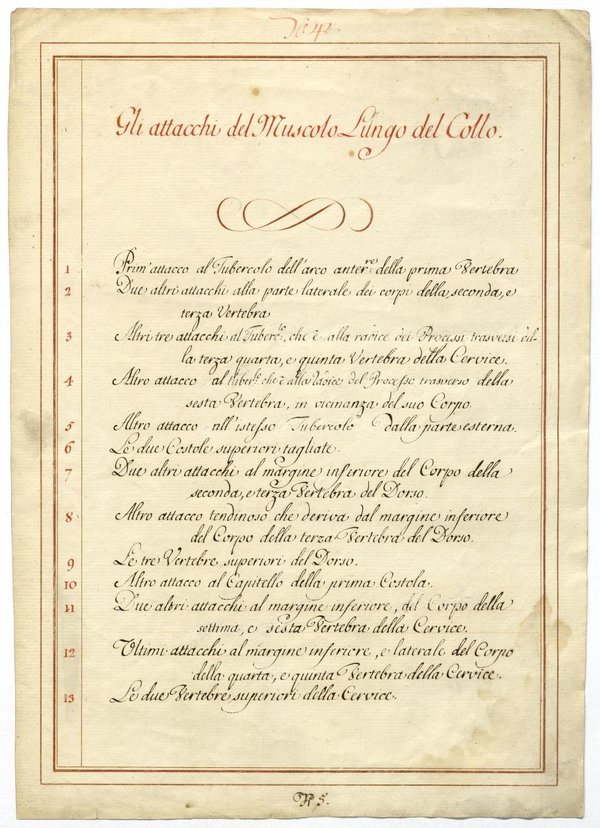 N.º 4.
Gli attacchi del Muscolo Lungo del Collo.
1 Prim'attacco al Tubercolo dell'arco anter.re della prima Vertebra
2 Due altri attacchi alla parte laterale dei corpi della seconda, e
terza Vertebra
3 Altri tre attacchi al Tuberc.lo, che è alla radice dei Processi trasversi del-
la terza quarta, e quinta Vertebra della Cervice.
4 Altro attacco al Tuberc.lo che è alla radice del Processo trasverso della
sesta Vertebra, in vicinanza del suo Corpo.
5 Altro attacco all'istesso Tubercolo dalla parte esterna.
6 Le due Costole superiori tagliate.
7 Due altri attacchi al margine inferiore del Corpo della
seconda, e terza Vertebra del Dorso.
8 Altro attacco tendinoso che deriva dal margine inferiore
del Corpo della terza Vertebra del Dorso.
9 Le tre Vertebre superiori del Dorso.
10 Altro attacco al Capitello della prima Costola.
11 Due altri attacchi al margine inferiore, del Corpo della
settima, e sesta Vertebra della Cervice.
12 Ultimi attacchi al margine inferiore, e laterale del Corpo
della quarta, e quinta Vertebra della Cervice.
13 Le due Vertebre superiori della Cervice.
N.º 5.